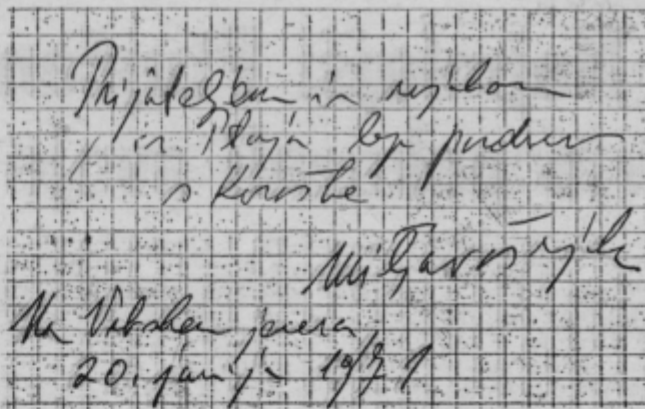 Prijateljem in
in Ptuja lep pozdrav
s Koroške
Mitja Šipek
Na Vrbskem jezeru
20. junija 1971